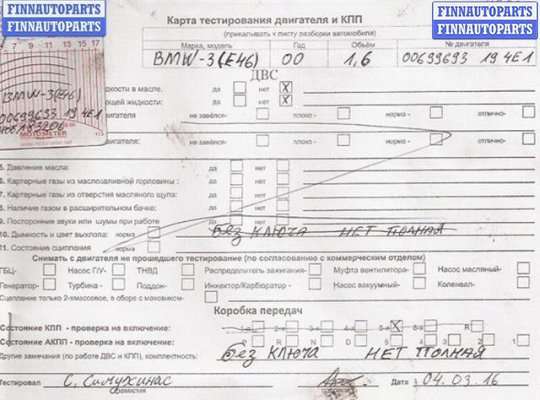 FINNAUTOPARTS
FINNAUTOPARTS
FINNAUTOPARTS
FINNAUTOPARTS
Карта тестирования двигателя и КПП
(прикалывать к листу разборки автомобиля)
Марка, модель Год Объём № двигателя
BMW-3(E46) 00 1,6 00699693 19 4E1
ДВС
15 17
BMW-3(E46)
00699693 19 4E1
жидкости в масле. да нет X
ющей жидкости: да нет X
двигателя не завёлся- плохо - норма - отлично-
двигателя: не завёлся- плохо - норма - отлично-
5. Давление масла: да нет
6. Картерные газы из маслозаливной горловины : да нет
7. Картерные газы из отверстия масляного щупа: да нет
8. Наличие газом в расширительном бачке: да нет
9. Посторонние звуки или шумы при работе да нет
10. Дымность и цвет выхлопа: норма Без ключа не полная
11. Состояние сцепления норма
Снимать с двигателя не прошедшего тестирование (по согласованию с коммерческим отделом)
ГБЦ- Насос Г/У- ТНВД Распределитель зажигания- Муфта вентилятора- Насос масляный-
Генератор- Турбина - Поддон- Инжектор/Карбюратор - Насос вакуумный- Коленвал-
Сцепление только 2-хмассовое, в сборе с маховиком-
Коробка передач
Состояние КПП - проверка на включение: 1-я 2-я 3-я 4-я 5-я X 6-я R
Состояние АКПП - проверка на включение: P R N D 5 4 3 2 1
Другие замечания (по работе ДВС и КПП), комплектность: Без ключа не полная
Тестировал С. Симухинас Дата 04.03.16
фамилия